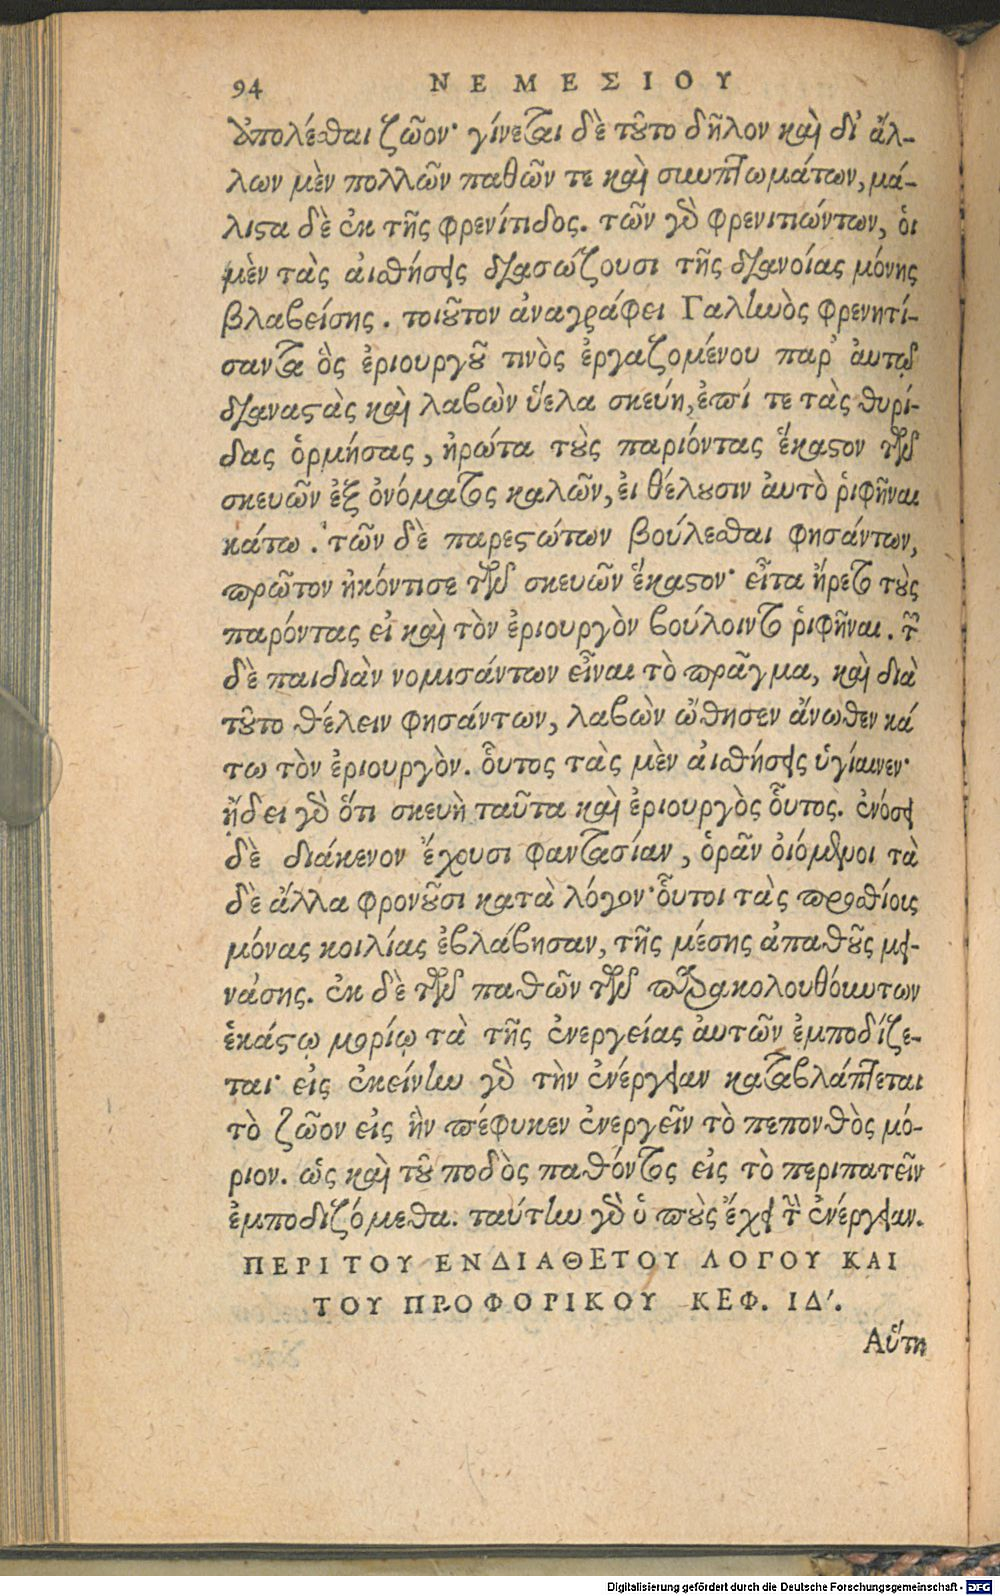 94 ΝΕΜΕΣΙΟΥ
ἀπολέσθαι ζῶον· γίνεται δὲ τοῦτο δῆλον καὶ δι' ἄλ-
λων μὲν πολλῶν παθῶν τε καὶ συμπτωμάτων, μά-
λιστα δὲ ἐκ τῆς φρενίτιδος. τῶν γὰρ φρενιτιώντων, ὁι
μὲν τὰς ἀισθήσεις διασώζουσι τῆς διανοίας μόνης
βλαβείσης. τοιοῦτον ἀναγράφει Γαληνὸς φρενητί-
σαντα ὃς ἐριουργοῦ τινὸς ἐργαζομένου παρ' ἀυτῷ
διαναστὰς καὶ λαβὼν ὕελα σκεύη, ἐπί τε τὰς θυρί-
δας ὁρμήσας, ἠρώτα τοὺς παριόντας ἕκαστον τῶν
σκευῶν ἐξ ὀνόματος καλῶν, ἐι θέλουσιν ἀυτὸ ῥιφῆναι
κάτω. τῶν δὲ παρεστώτων βούλεσθαι φησάντων,
πρῶτον ἠκόντισε τῶν σκευῶν ἕκαστον· εἶτα ἤρετο τοὺς
παρόντας εἰ καὶ τὸν ἐριουργὸν βούλοιντο ῥιφῆναι. τῶν
δὲ παιδιὰν νομισάντων εἶναι τὸ πρᾶγμα, καὶ διὰ
τοῦτο θέλειν φησάντων, λαβὼν ὤθησεν ἄνωθεν κά
τω τὸν ἐριουργὸν. οὗτος τὰς μὲν ἀισθήσεις ὑγίαινεν·
ᾔδει γὰρ ὅτι σκευὴ ταῦτα καὶ ἐριουργὸς οὗτος. ἐνόσει
δὲ διάκενον ἔχουσι φαντασίαν, ὁρᾶν ὀιόμενοι τὰ
δὲ ἄλλα φρονοῦσι κατὰ λόγον· οὗτοι τὰς προσθίοις
μόνας κοιλίας ἐβλάβησαν, τῆς μέσης ἀπαθοῦς μει-
νάσης. ἐκ δὲ τῶν παθῶν τῶν παρακολουθούντων
ἑκάστῳ μορίῳ τὰ τῆς ἐνεργείας ἀυτῶν ἐμποδίζε-
ται· εἰς ἐκείνην γὰρ τὴν ἐνέργειαν καταβλάπτεται
τὸ ζῶον εἰς ἣν πέφυκεν ἐνεργεῖν τὸ πεπονθὸς μό-
ριον. ὡς καὶ τοῦ ποδὸς παθόντος εἰς τὸ περιπατεῖν
ἐμποδιζόμεθα. ταύτην γὰρ ὁ ποὺς ἔχει τὴν ἐνέργειαν.
ΠΕΡΙ ΤΟΥ ΕΝΔΙΑΘΕΤΟΥ ΛΟΓΟΥ ΚΑΙ
ΤΟΥ ΠΡΟΦΟΡΙΚΟΥ ΚΕΦ. ΙΔ'.
Αὕτη
Digitalisierung gefördert durch die Deutsche Forschungsgemeinschaft - DFG